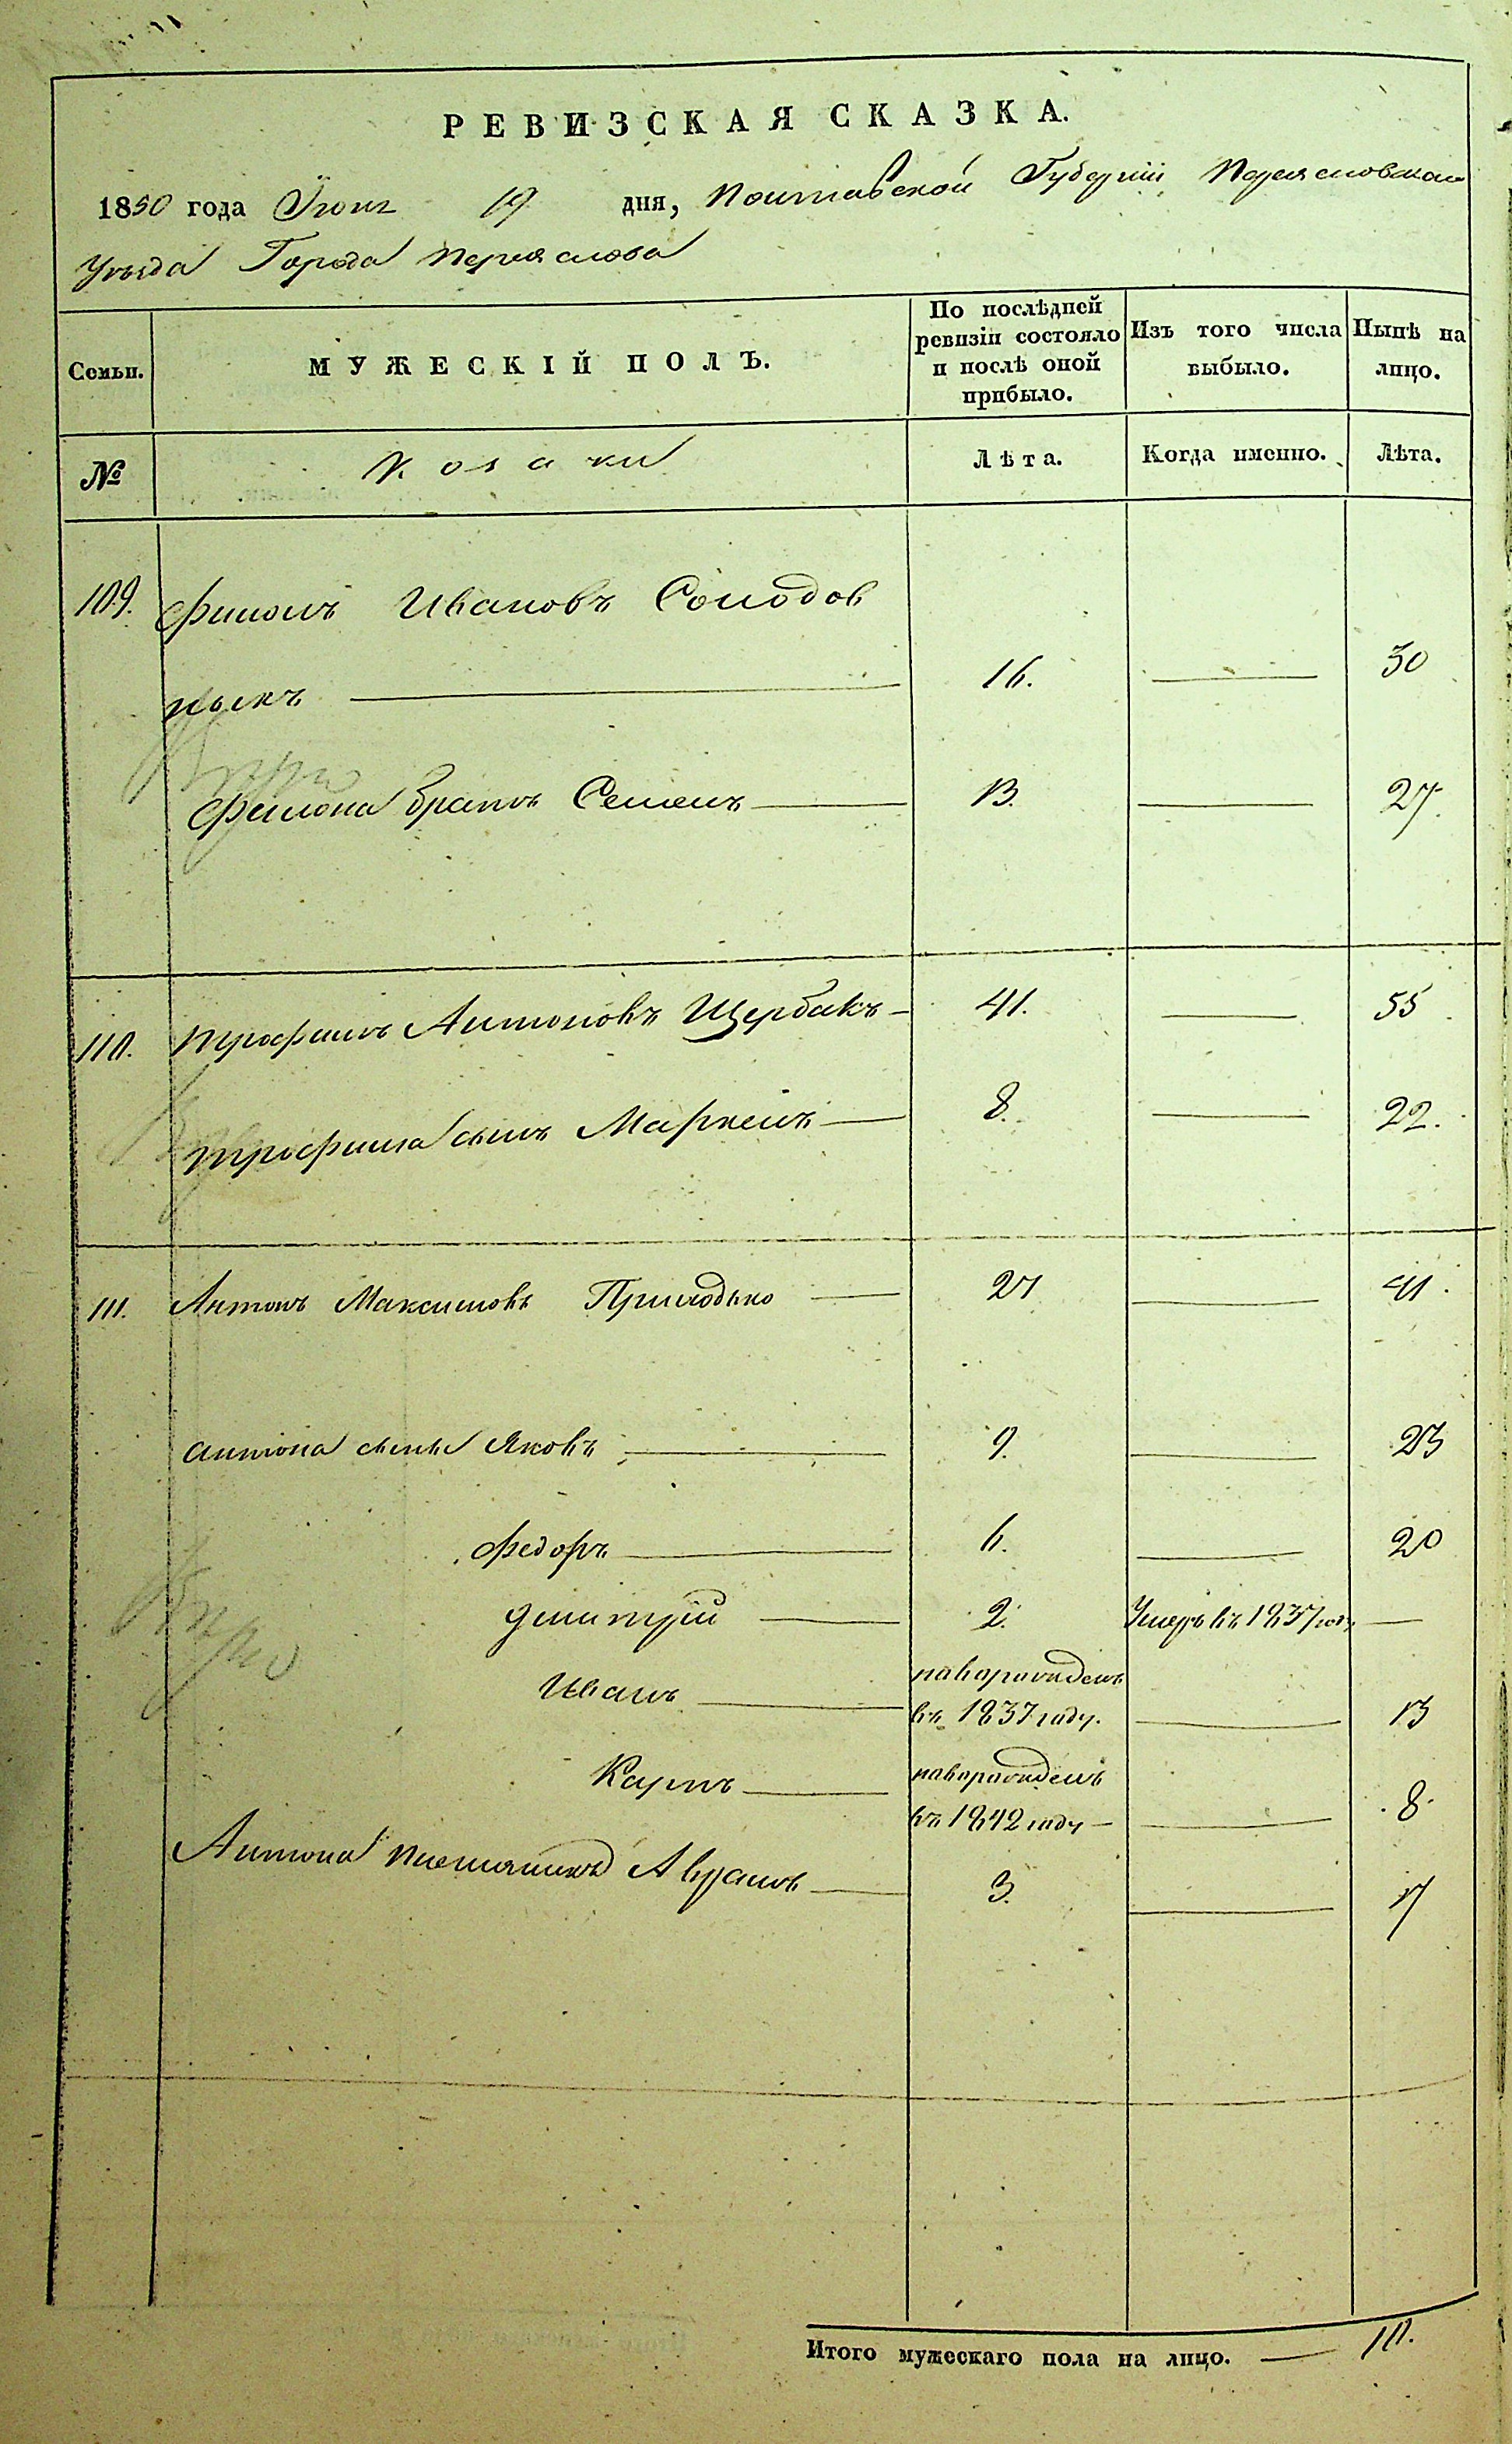 РЕВИЗСКАЯ СКАЗКА.
1850 года Iюня 19 дня, Полтавской Губернiи Переясловскаго
Уѣзда Города Переяслова
Семьи. МУЖЕСКIЙ ПОЛЪ. По послѣдней ревизiи состояло и послѣ оной прибыло. Изъ того числа выбыло. Нынѣ на лицо.
№ Козаки Лѣта. Когда именно. Лѣта.
109. Филонъ Ивановъ Солодов
ныкъ 16. 30
Филона братъ Семенъ 13. 27.
110. Трофимъ Антоновъ Щербакъ 41. 55
Трофима сынъ Маркелъ 8. 22.
111. Антонъ Максимовъ Приходько 27 41.
Антона сыны Яковъ 9. 23
Федоръ 6. 20
Дмитрiй 2. Умеръ въ 1837 году
Иванъ новорожденъ
въ 1837 году. 13
Карпъ новорожденъ
въ 1842 году 8.
Антона племянникъ Аврамъ 3. 17
Итого мужескаго пола на лицо. 10.